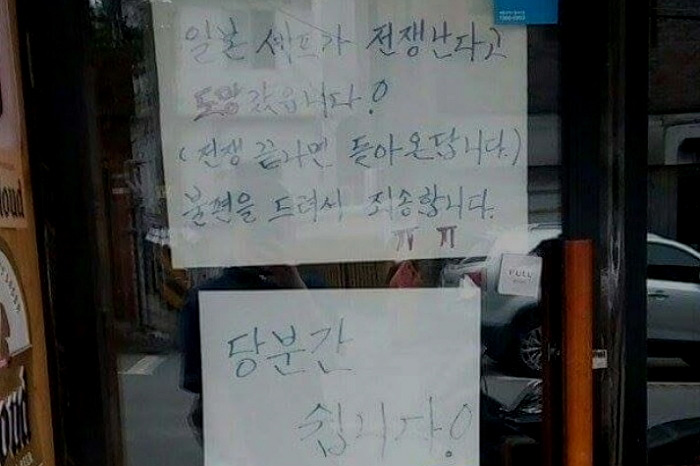 일본 셰프가 전쟁난다고
도망갔읍니다!
(전쟁 끝나면 돌아온답니다.)
불편을 드려서 죄송합니다.
ㅠ ㅠ
PULL
당분간
쉽니다!